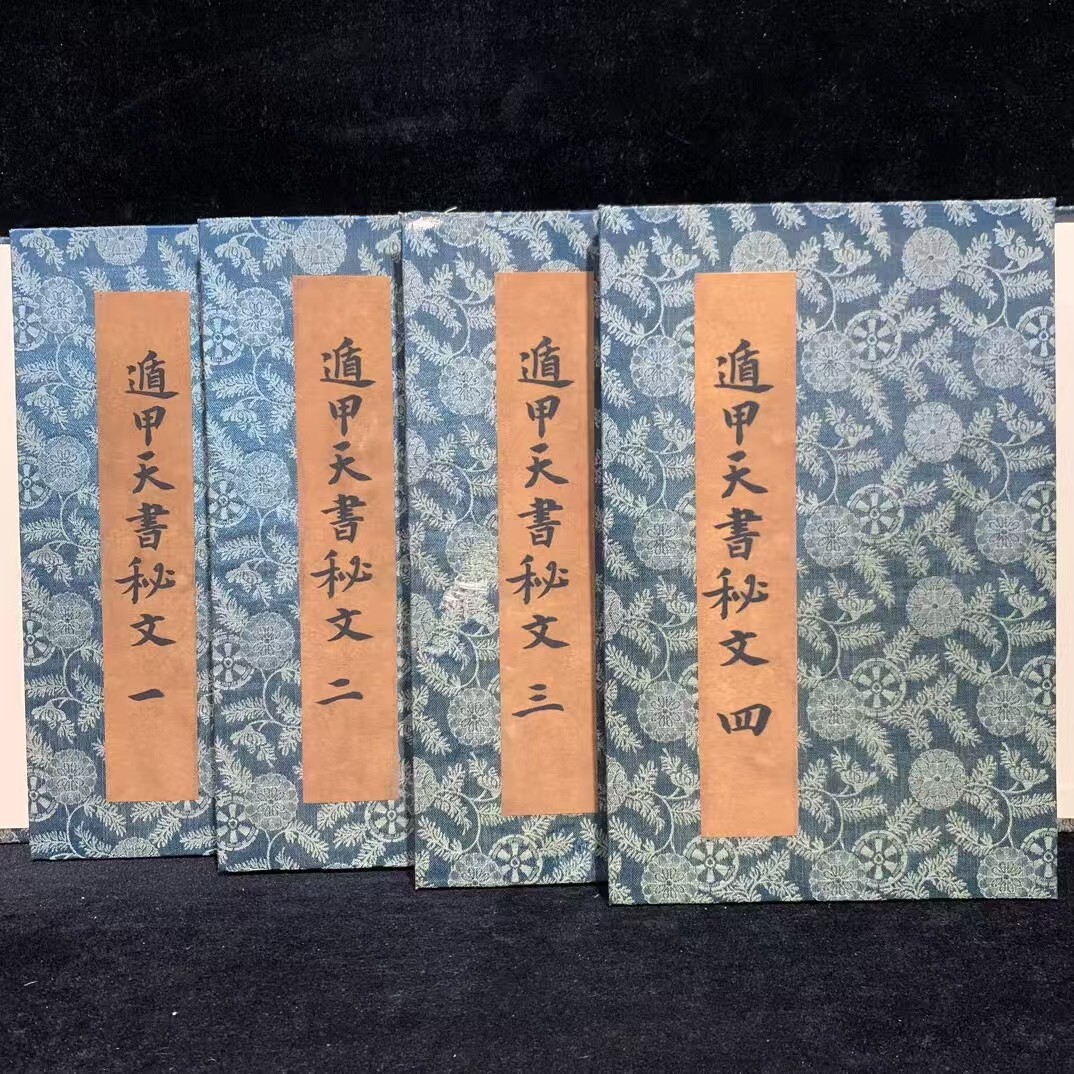 遁甲天書秘文 一
遁甲天書秘文 二
遁甲天書秘文 三
遁甲天書秘文 四